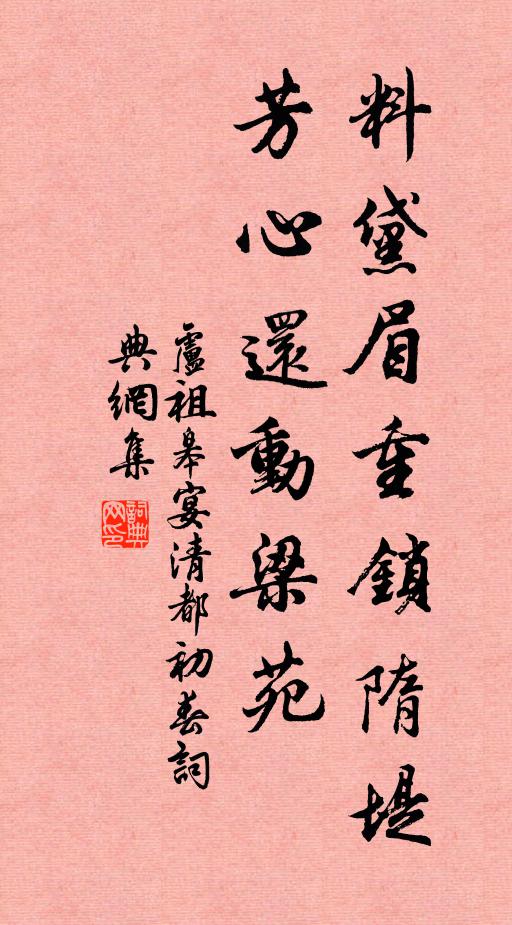 料黛眉重鎖隋堤
芳心還動梁苑
盧祖皋宴清都初春詞
典網集
詞典網印